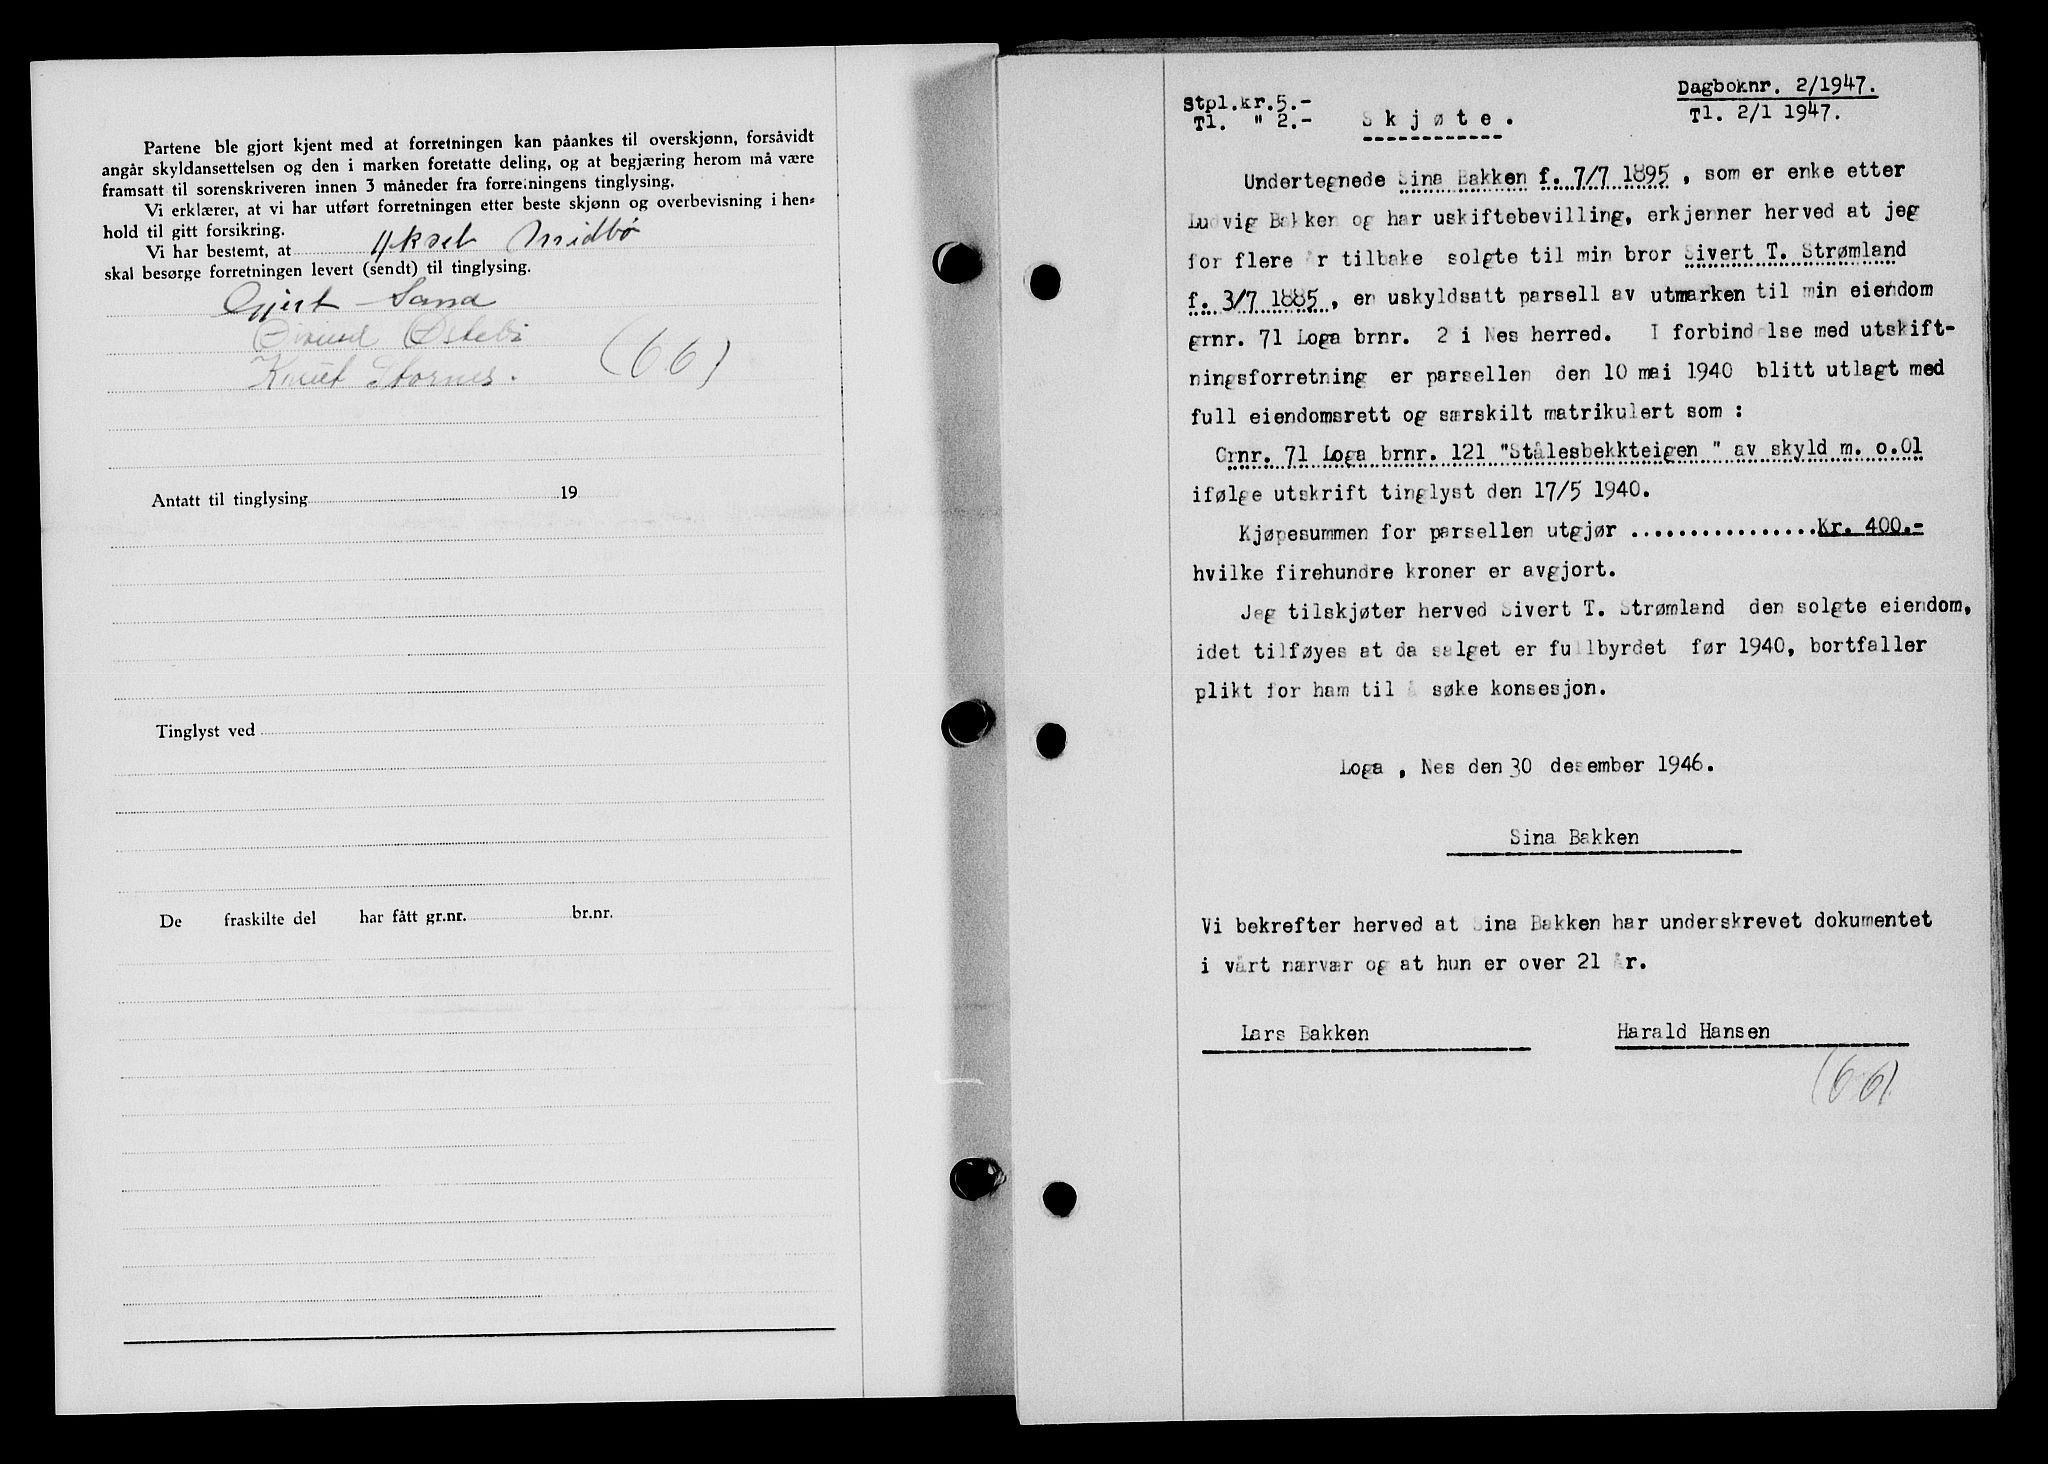 Partene ble gjort kjent med at forretningen kan påankes til overskjønn, forsåvidt
angår skyldansettelsen og den i marken foretatte deling, og at begjæring herom må være
framsatt til sorenskriveren innen 3 måneder fra forretningens tinglysing.
Vi erklærer, at vi har utført forretningen etter beste skjønn og overbevisning i hen-
hold til gitt forsikring.
Vi har bestemt, at Aksel Midbø
skal besørge forretningen levert (sendt) til tinglysing.
Gjert Sand
Østebø
Knut Stornes.
(66)
Antatt til tinglysing 19
Tinglyst ved
De fraskilte del har fått gr.nr. br.nr.
Stpl.kr.5.-
Tl. " 2.-
Skjøte.
Dagboknr. 2/1947.
Tl. 2/1 1947.
Undertegnede Sina Bakken f. 7/7 1895, som er enke etter
Ludvig Bakken og har uskiftebevilling, erkjenner herved at jeg
for flere år tilbake solgte til min bror Sivert T. Strømland
f. 3/7 1885, en uskyldsatt parsell av utmarken til min eiendom
grnr. 71 Loga brnr. 2 i Nes herred. I forbindelse med utskift-
ningsforretning er parsellen den 10 mai 1940 blitt utlagt med
full eiendomsrett og særskilt matrikulert som :
Grnr. 71 Loga brnr. 121 "Stålesbekkteigen " av skyld m. 0.01
ifølge utskrift tinglyst den 17/5 1940.
Kjøpesummen for parsellen utgjør ................Kr. 400.-
hvilke firehundre kroner er avgjort.
Jeg tilskjøter herved Sivert T. Strømland den solgte eiendom,
idet tilføyes at da salget er fullbyrdet før 1940, bortfaller
plikt for ham til å søke konsesjon.
Loga , Nes den 30 desember 1946.
Sina Bakken
Vi bekrefter herved at Sina Bakken har underskrevet dokumentet
i vårt nærvær og at hun er over 21 år.
Lars Bakken Harald Hansen
(66)